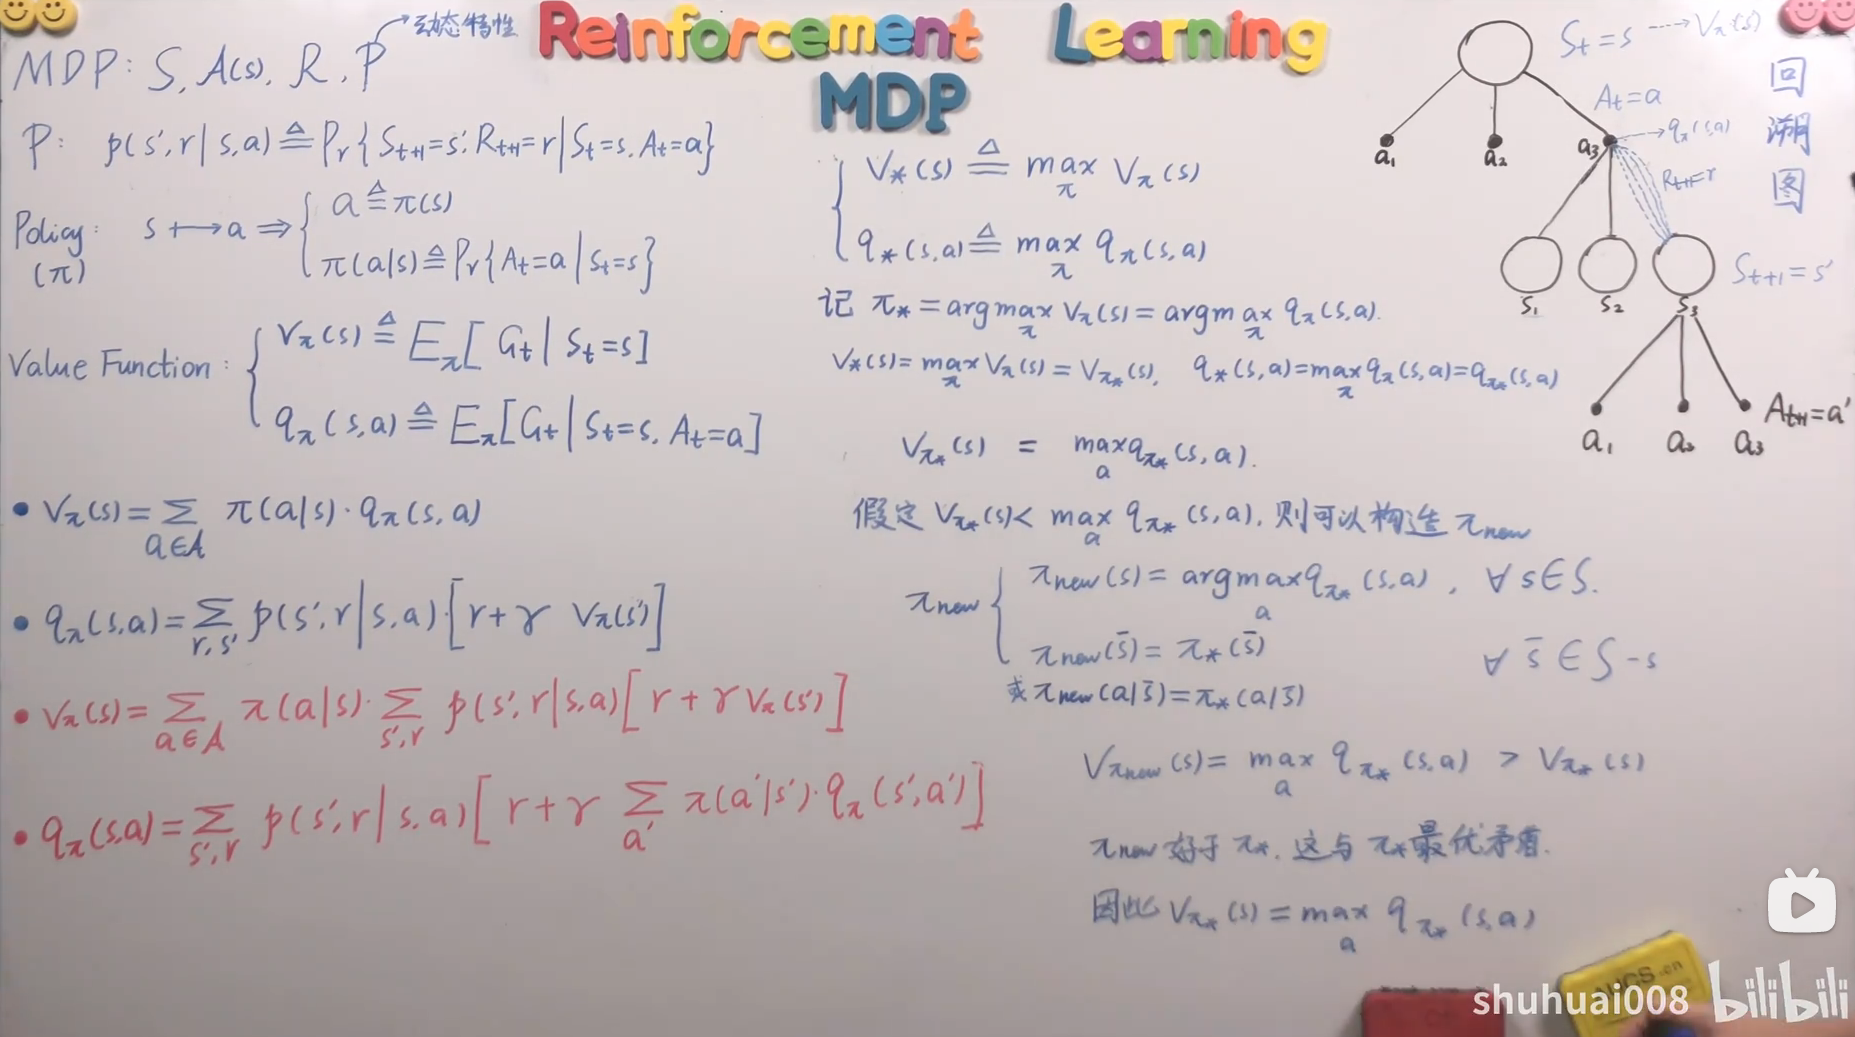 Reinforcement Learning
MDP
MDP: S, A(s), R, P → 动态特性
P: p(s',r|s,a) ≜ Pr{S_{t+1}=s', R_{t+1}=r|S_t=s, A_t=a}
Policy: (π) s ↦ a ⇒
a ≜ π(s)
π(a|s) ≜ Pr{A_t=a|S_t=s}
Value Function:
V_π(s) ≜ E_π[G_t|S_t=s]
q_π(s,a) ≜ E_π[G_t|S_t=s, A_t=a]
• V_π(s) = Σ_{a∈A} π(a|s)·q_π(s,a)
• q_π(s,a) = Σ_{r,s'} p(s',r|s,a)·[r+γ V_π(s')]
• V_π(s) = Σ_{a∈A} π(a|s)·Σ_{s',r} p(s',r|s,a)[r+γV_π(s')]
• q_π(s,a) = Σ_{s',r} p(s',r|s,a)[r+γ Σ_{a'} π(a'|s')·q_π(s',a')]
V_*(s) ≜ max_π V_π(s)
q_*(s,a) ≜ max_π q_π(s,a)
记 π_* = argmax_π V_π(s) = argmax_π q_π(s,a).
V_*(s) = max_π V_π(s) = V_{π_*}(s), q_*(s,a) = max_π q_π(s,a) = q_{π_*}(s,a)
V_{π_*}(s) = max_a q_{π_*}(s,a).
假定 V_{π_*}(s) < max_a q_{π_*}(s,a), 则可以构造 π_new
π_new
π_new(s) = argmax_a q_{π_*}(s,a), ∀ s∈S.
π_new(s̄) = π_*(s̄) ∀ s̄ ∈ S-s
或 π_new(a|s̄) = π_*(a|s̄)
V_{π_new}(s) = max_a q_{π_*}(s,a) > V_{π_*}(s)
π_new 好于 π_*, 这与 π_* 最优矛盾.
因此 V_{π_*}(s) = max_a q_{π_*}(s,a)
S_t=s → V_π(s)
回溯图
A_t=a
a₁ a₂ a₃ → q_π(s,a)
R_{t+1}=r
S_{t+1}=s'
s₁ s₂ s₃
A_{t+1}=a'
a₁ a₂ a₃
shuhuai008 bilibili